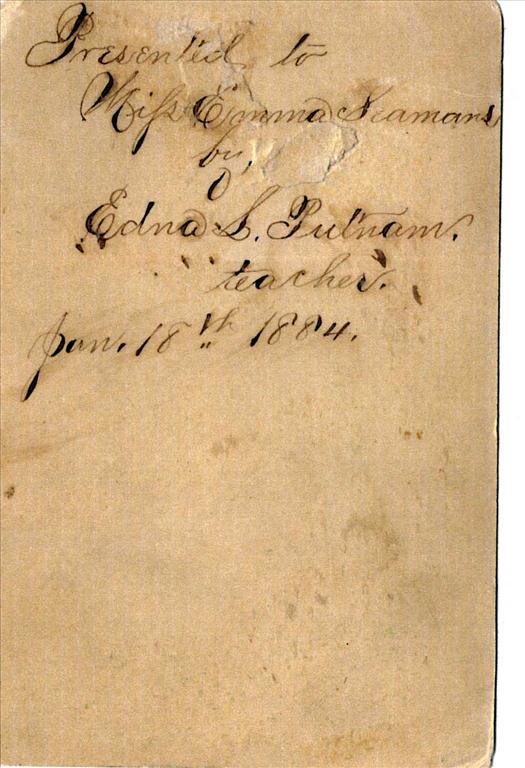 Presented to
Miss Emma Seamans
by
Edna S. Putnam.
teacher.
Jan. 18th 1884.